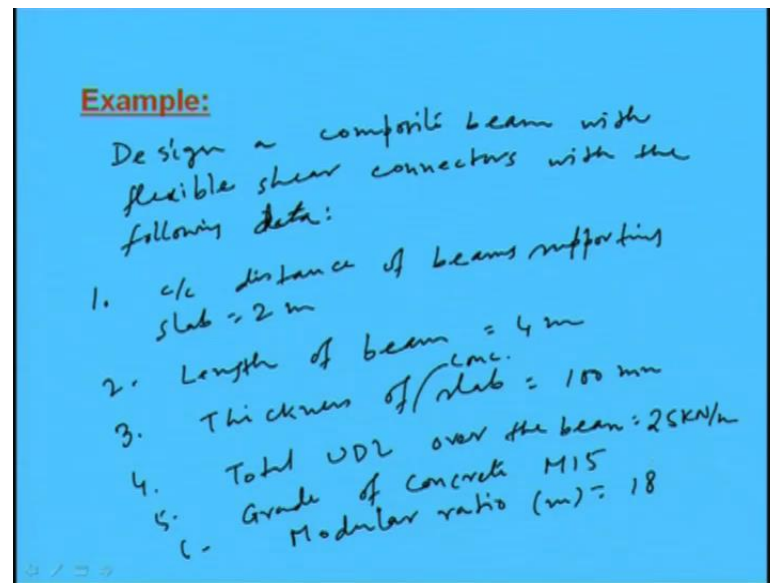 Example:
Design a composite beam with
flexible shear connectors with the
following data:
1. c/c distance of beams supporting
slab = 2 m
2. Length of beam = 4 m
3. Thickness of conc. slab = 100 mm
4. Total UDL over the beam = 25KN/m
5. Grade of concrete M15
6. Modular ratio (m) = 18